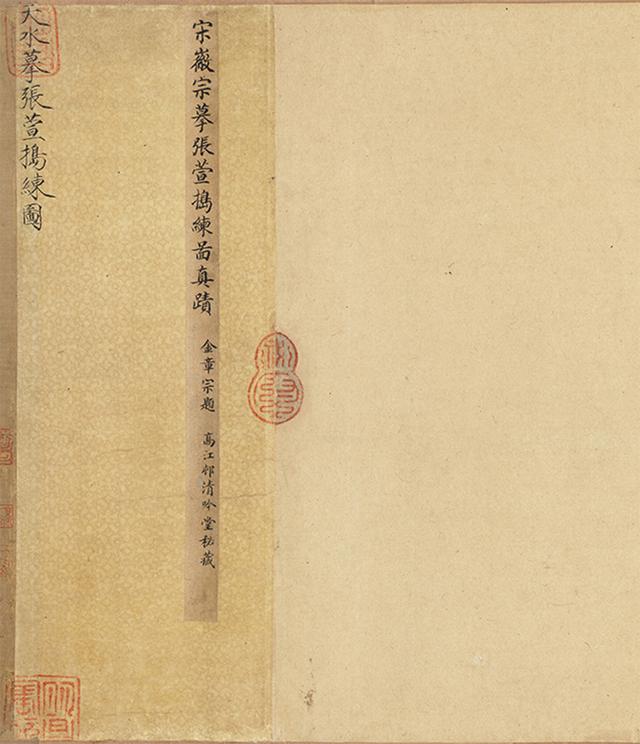 宋徽宗摹張萱搗練啚真蹟 金章宗題 高江邨清吟堂秘藏
天水摹張萱搗練圖